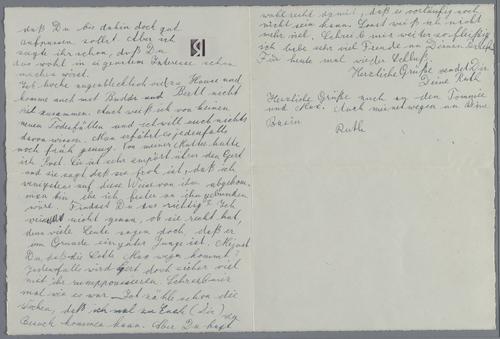 daß Du bis dahin doch gut
aufpassen sollst. Aber ich
sagte ihr schon, daß Du
das wohl in eigenstem Interesse schon
machen wirst.
Ich hocke augenblicklich viel zu Hause und
komme auch mit Buddi und Bertl nicht
viel zusammen. Auch weiß ich von keinen
neuen Todesfällen und ich will auch nichts
davon wissen. Man erfährt es jedenfalls
noch früh genug. Von meiner Mutter hatte
ich Post. Sie ist sehr empört über den Gert
und sie sagt daß sie froh ist, daß ich
wenigstens auf diese Weise von ihm abgekom-
men bin, ehe ich fester an ihn gebunden
wäre. Findest Du das richtig? Ich
weiß nicht genau, ob sie recht hat,
denn viele Leute sagen doch, daß er
im Grunde ein guter Junge ist. Meinst
Du daß die Lotte Mao wegen kommt?
Jedenfalls wird Gert doch sicher viel
mit ihr
mal wie es war. Ich zähle schon die
Wochen, daß ich mal zu Euch (Dir) zu
Besuch kommen kann. Aber Du hast
wohl recht damit, daß es vorläufig noch
nicht sein kann. Sonst weiß ich nicht
mehr viel. Schreib mir weiter so fleißig
ich habe sehr viel Freude an Deinen Briefen
Für heute mal wieder Schluß.
Herzliche Grüße sendet Dir
Deine Ruth
Herzliche Grüße noch an den Tommie
und Max. Auch meinetwegen an Deine
Ruth